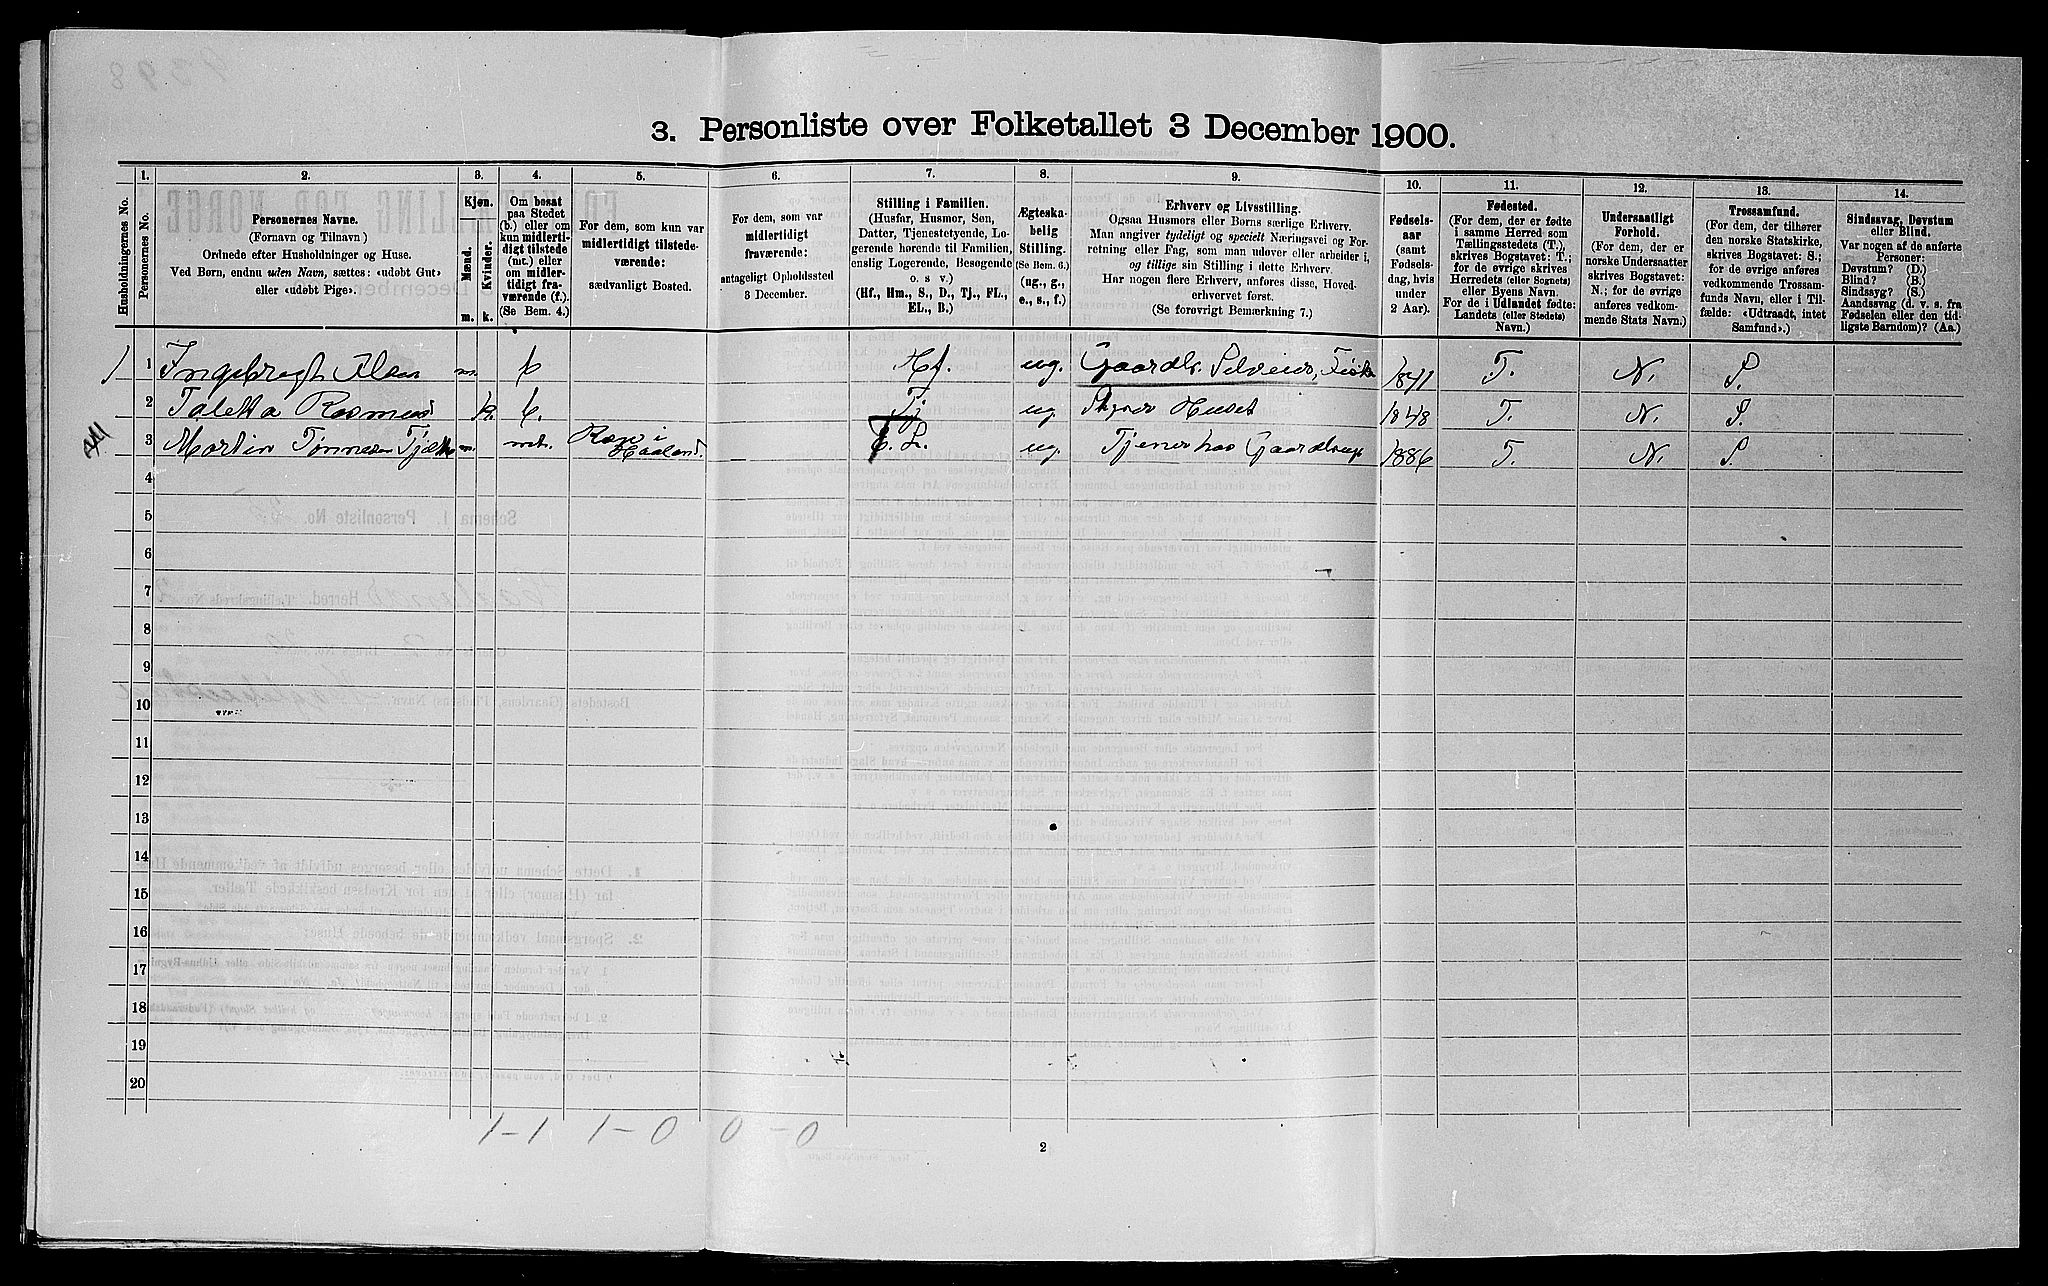 3. Personliste over Folketallet 3 December 1900.
1. 2. 3. 4. 5. 6. 7. 8. 9. 10. 11. 12. 13. 14.
Husholdningernes No.
Personernes No.
Personernes Navne.
(Fornavn og Tilnavn)
Ordnede efter Husholdninger og Huse.
Ved Børn, endnu uden Navn, sættes: «udøbt Gut»
eller «udøbt Pige».
Kjøn.
Mænd.
Kvinder.
m. k.
Om bosat
paa Stedet
(b.) eller om
kun midlerti-
digt tilstede
(mt.) eller
om midler-
tidigt fra-
værende (f.).
(Se Bem. 4.)
For dem, som kun var
midlertidigt tilstede-
værende:
sædvanligt Bosted.
For dem, som var
midlertidigt
fraværende:
antageligt Opholdssted
3 December.
Stilling i Familien.
(Husfar, Husmor, Søn,
Datter, Tjenestetyende, Lo-
gerende hørende til Familien,
enslig Logerende, Besøgende
o. s v.)
(Hf., Hm., S., D., Tj., FL.,
EL., B.)
Ægteska-
belig
Stilling.
(Se Bem. 6.)
(ug., g.,
e., s., f.)
Erhverv og Livsstilling.
Ogsaa Husmors eller Børns særlige Erhverv.
Man angiver tydeligt og specielt Næringsvei og For-
retning eller Fag, som man udøver eller arbeider i,
og tillige sin Stilling i dette Erhverv.
Har nogen flere Erhverv, anføres disse, Hoved-
erhvervet først.
(Se forøvrigt Bemærkning 7.)
Fødsels-
aar
(samt
Fødsels-
dag, hvis
under
2 Aar).
Fødested.
(For dem, der er fødte
i samme Herred som
Tællingsstedets (T.),
skrives Bogstavet: T.;
for de øvrige skrives
Herredets (eller Sognets)
eller Byens Navn.
For de i Udlandet fødte:
Landets (eller Stedets)
Navn.)
Undersaatligt
Forhold.
(For dem, der er
norske Undersaatter
skrives Bogstavet:
N.; for de øvrige
anføres vedkom-
mende Stats Navn.)
Trossamfund.
(For dem, der tilhører
den norske Statskirke,
skrives Bogstavet: S.;
for de øvrige anføres
vedkommende Trossam-
funds Navn, eller i Til-
fælde: «Udtraadt, intet
Samfund».)
Sindssvag, Døvstum
eller Blind.
Var nogen af de anførte
Personer:
Døvstum? (D.)
Blind? (B.)
Sindssyg? (S.)
Aandssvag (d. v. s. fra
Fødselen eller den tid-
ligste Barndom)? (Aa.)
1 Ingebregt Olsen m. b Hf. ug. Gaardbr. Selveier, Fisker 1841 T. N. S.
2 Taletta k. b. Tj ug Huset 1848 T. N. S.
3 Martin Tønnesen m. mt. i Haaland. E. L. ug. Tjener hos Gaardbruger 1886 T. N. S.
4
5
6
7
8
9
10
11
12
13
14
15
16
17
18
19
20
1-1 1-0 0-0
2